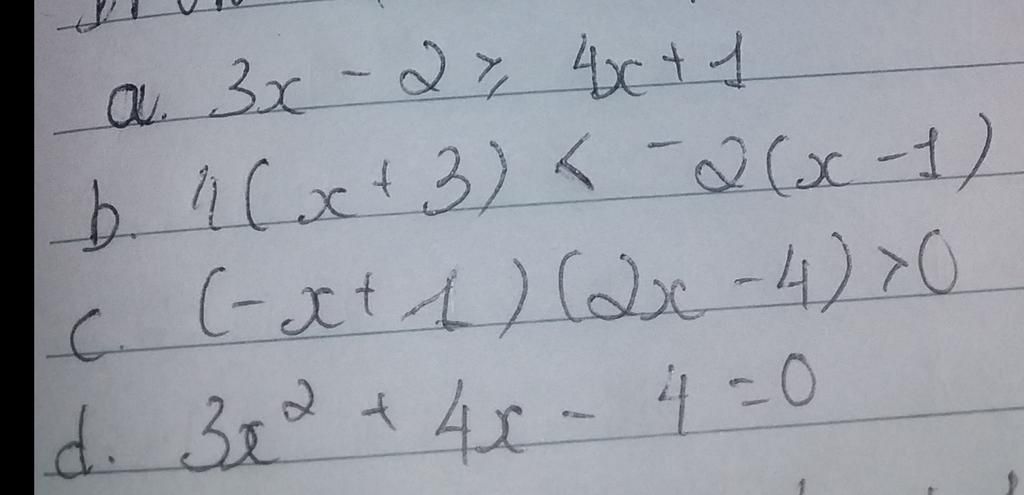 a. 3x - 2 ⩾ 4x + 1
b. 4(x + 3) < -2(x - 1)
c. (-x + 1)(2x - 4) > 0
d. 3x² + 4x - 4 = 0